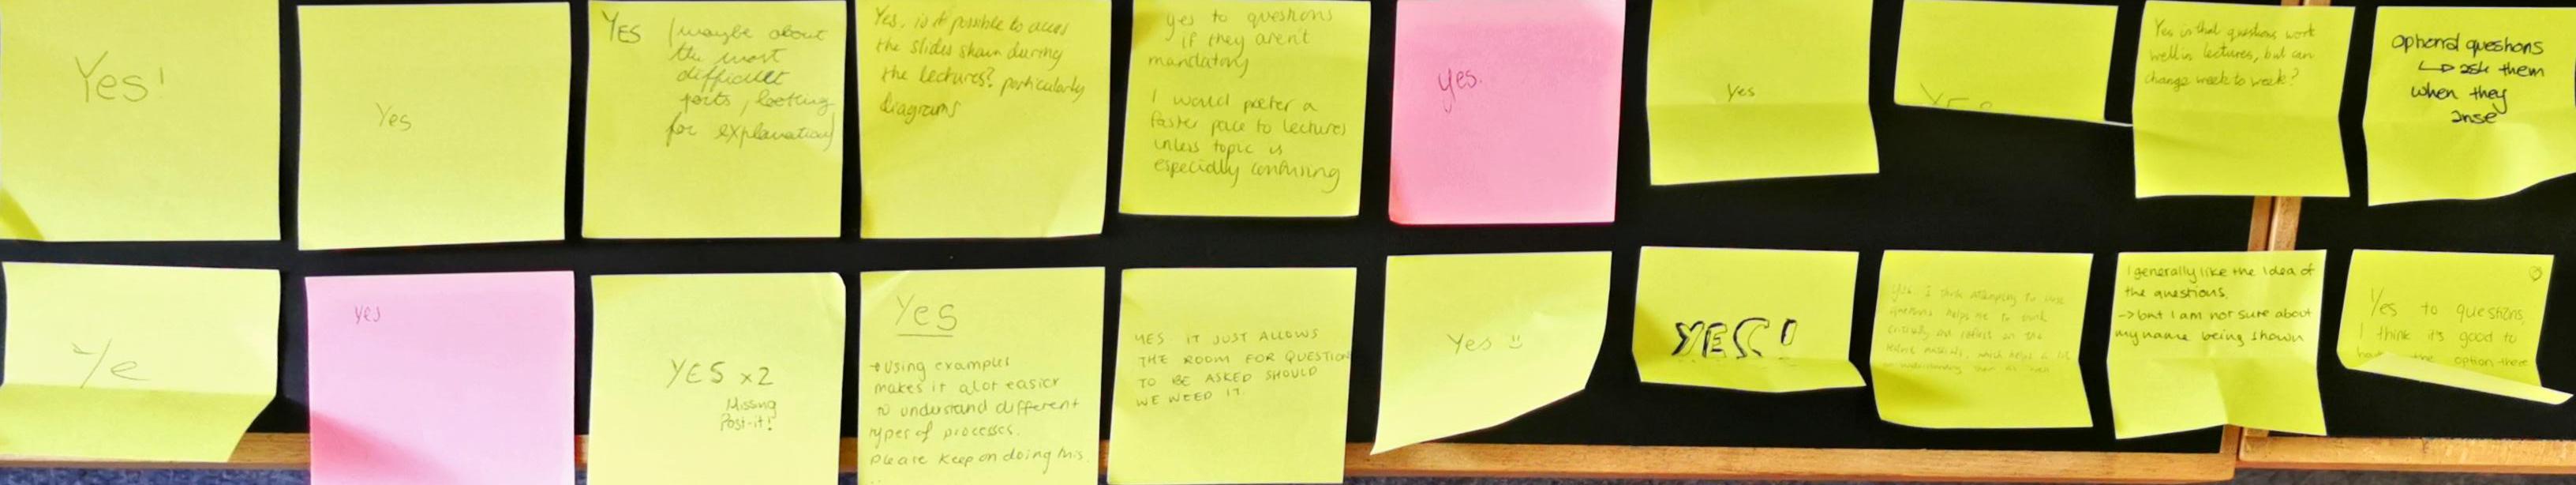 Yes!
Yes
YES (maybe about
the most
difficult
parts, looking
for explanation)
Yes. is it possible to access
the slides shown during
the lectures? particularly
diagrams
yes to questions
if they aren't
mandatory
I would prefer a
faster pace to lectures
unless topic is
especially confusing
yes.
Yes
Yes
Yes is that questions work
well in lectures, but can
change week to week?
optional questions
↳ ask them
when they
arise
Ye
yes
YES x2
Missing
Post-it!
Yes
→ Using examples
makes it alot easier
to understand different
types of processes.
please keep on doing this.
YES IT JUST ALLOWS
THE ROOM FOR QUESTION
TO BE ASKED SHOULD
WE NEED IT.
Yes
YES!
Yes I think attempting to
questions helps me to
critically and reflect on the
which helps
understanding
I generally like the idea of
the questions.
→ but I am not sure about
my name being shown
Yes to questions,
I think it's good to
the option there